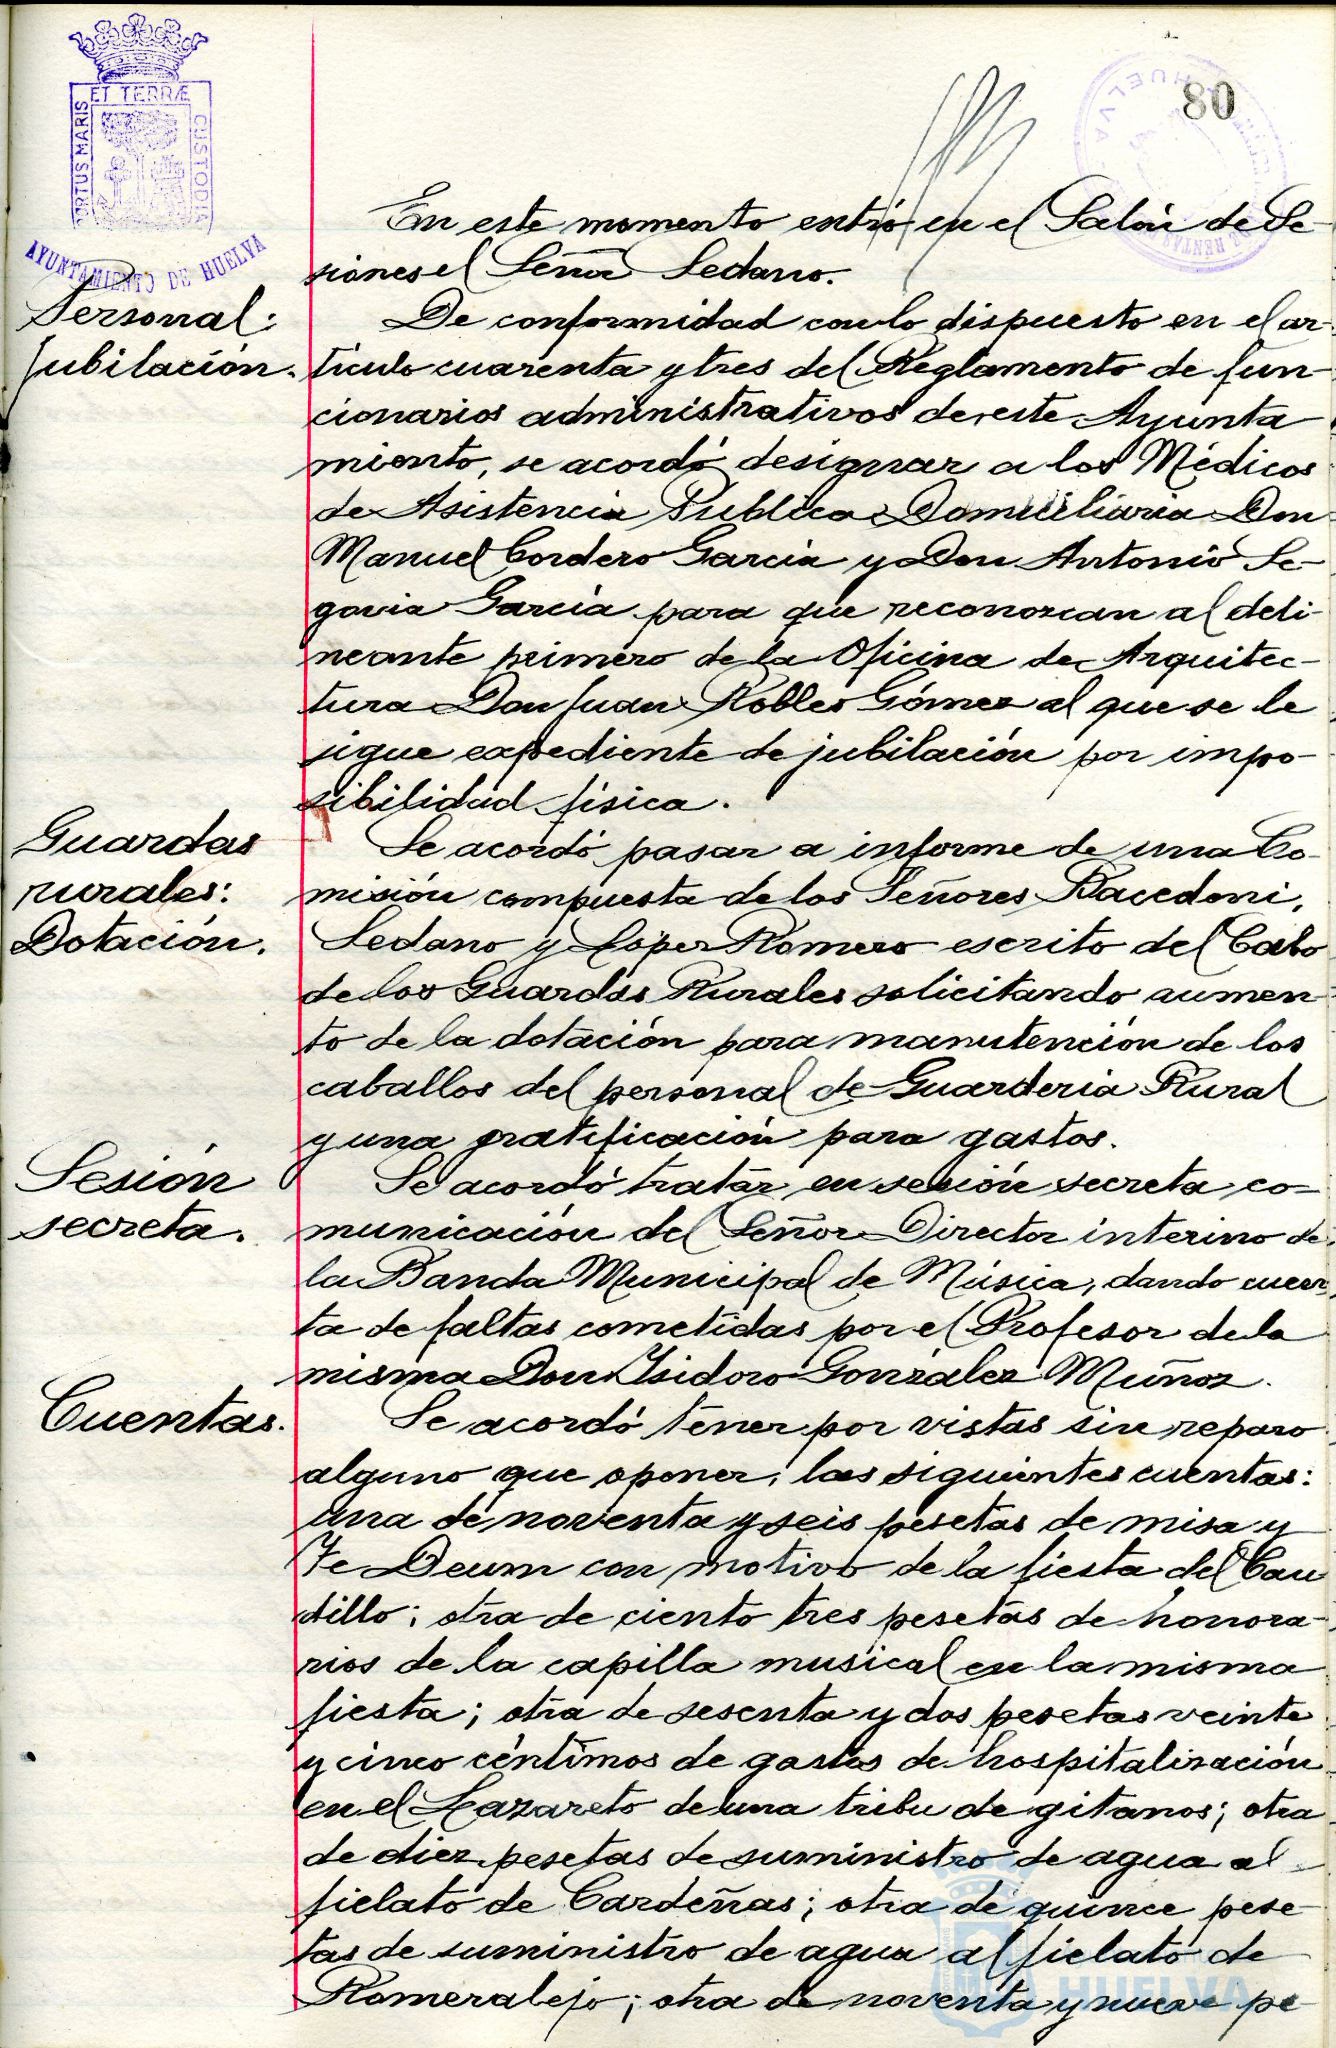 80
PORTUS MARIS ET TERRÆ CUSTODIA
AYUNTAMIENTO DE HUELVA
En este momento entró en el Salón de Se-
siones el Señor Sedano.
Personal:
Jubilación.
De conformidad con lo dispuesto en el ar-
tículo cuarenta y tres del Reglamento de fun-
cionarios administrativos de este Ayunta
miento, se acordó designar a los Médicos
de Asistencia Publica Domiciliaria Don
Manuel Cordero García y Don Antonio Se-
govia García para que reconozcan al deli-
neante primero de la Oficina de Arquitec-
tura Don Juan Robles Gómez al que se le
sigue expediente de jubilación por impo-
sibilidad física.
Guardas
rurales:
Dotación.
Se acordó pasar a informe de una Co-
misión compuesta de los Señores Bacedoni,
Sedano y López Romero escrito del Cabo
de los Guardas Rurales solicitando aumen-
to de la dotación para manutención de los
caballos del personal de Guardería Rural
y una gratificación para gastos.
Sesión
secreta.
Se acordó tratar en sesión secreta co-
municación del Señor Director interino de
la Banda Municipal de Música, dando cuen-
ta de faltas cometidas por el Profesor de la
misma Don Isidoro González Muñoz.
Cuentas.
Se acordó tener por vistas sin reparo
alguno que oponer, las siguientes cuentas:
una de noventa y seis pesetas de misa y
Te Deum con motivo de la fiesta del Cau
dillo; otra de ciento tres pesetas de honora-
rios de la capilla musical en la misma
fiesta; otra de sesenta y dos pesetas veinte
y cinco céntimos de gastos de hospitalización
en el Lazareto de una tribu de gitanos; otra
de diez pesetas de suministro de agua al
fielato de Cardeñas; otra de quince pese-
tas de suministro de agua al fielato de
Romeralejo; otra de noventa y nueve pe
HUELVA